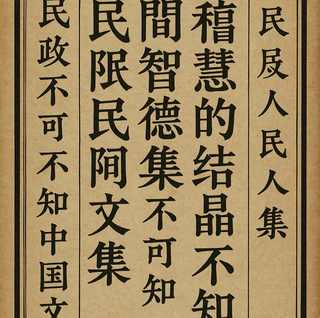 民人民人集
慧的结晶不知
間智德集不可知
民眠民文集
民政不可不知中国文